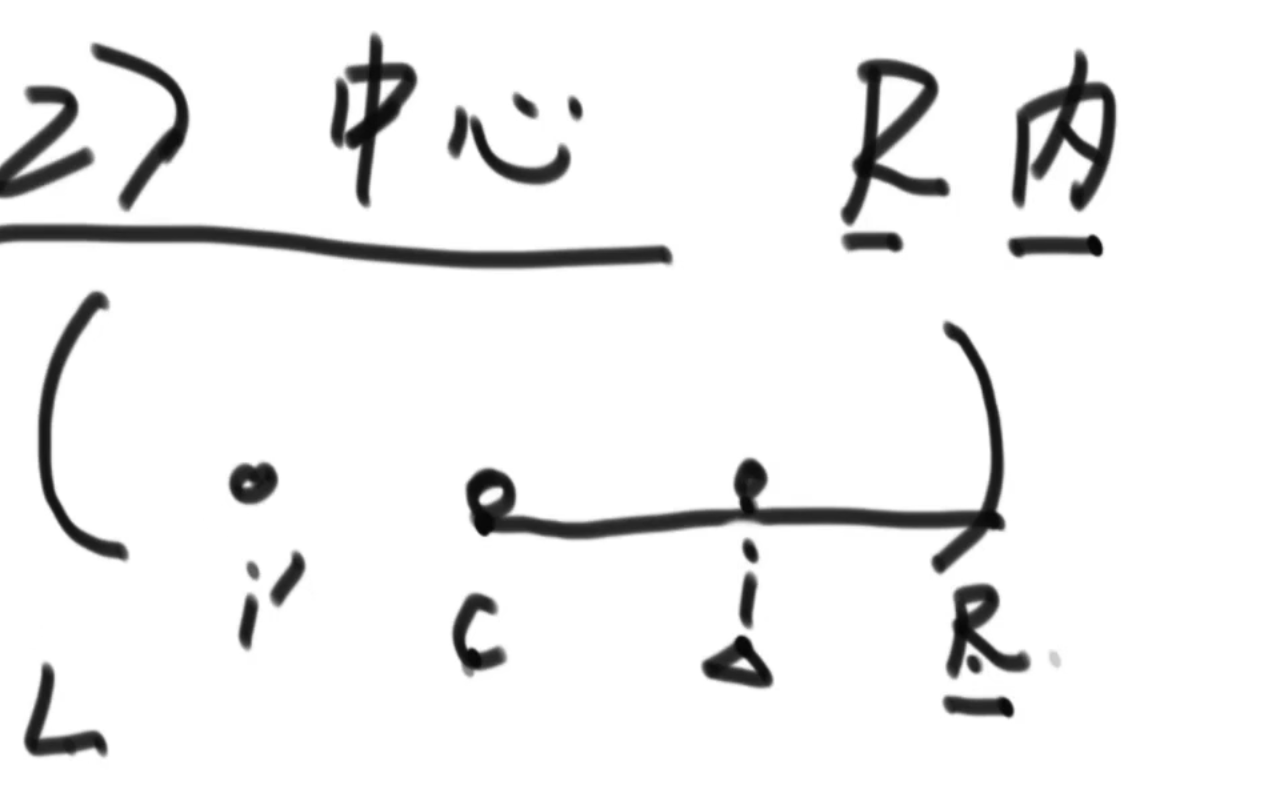 2) 中心 R内
i' C i R
L